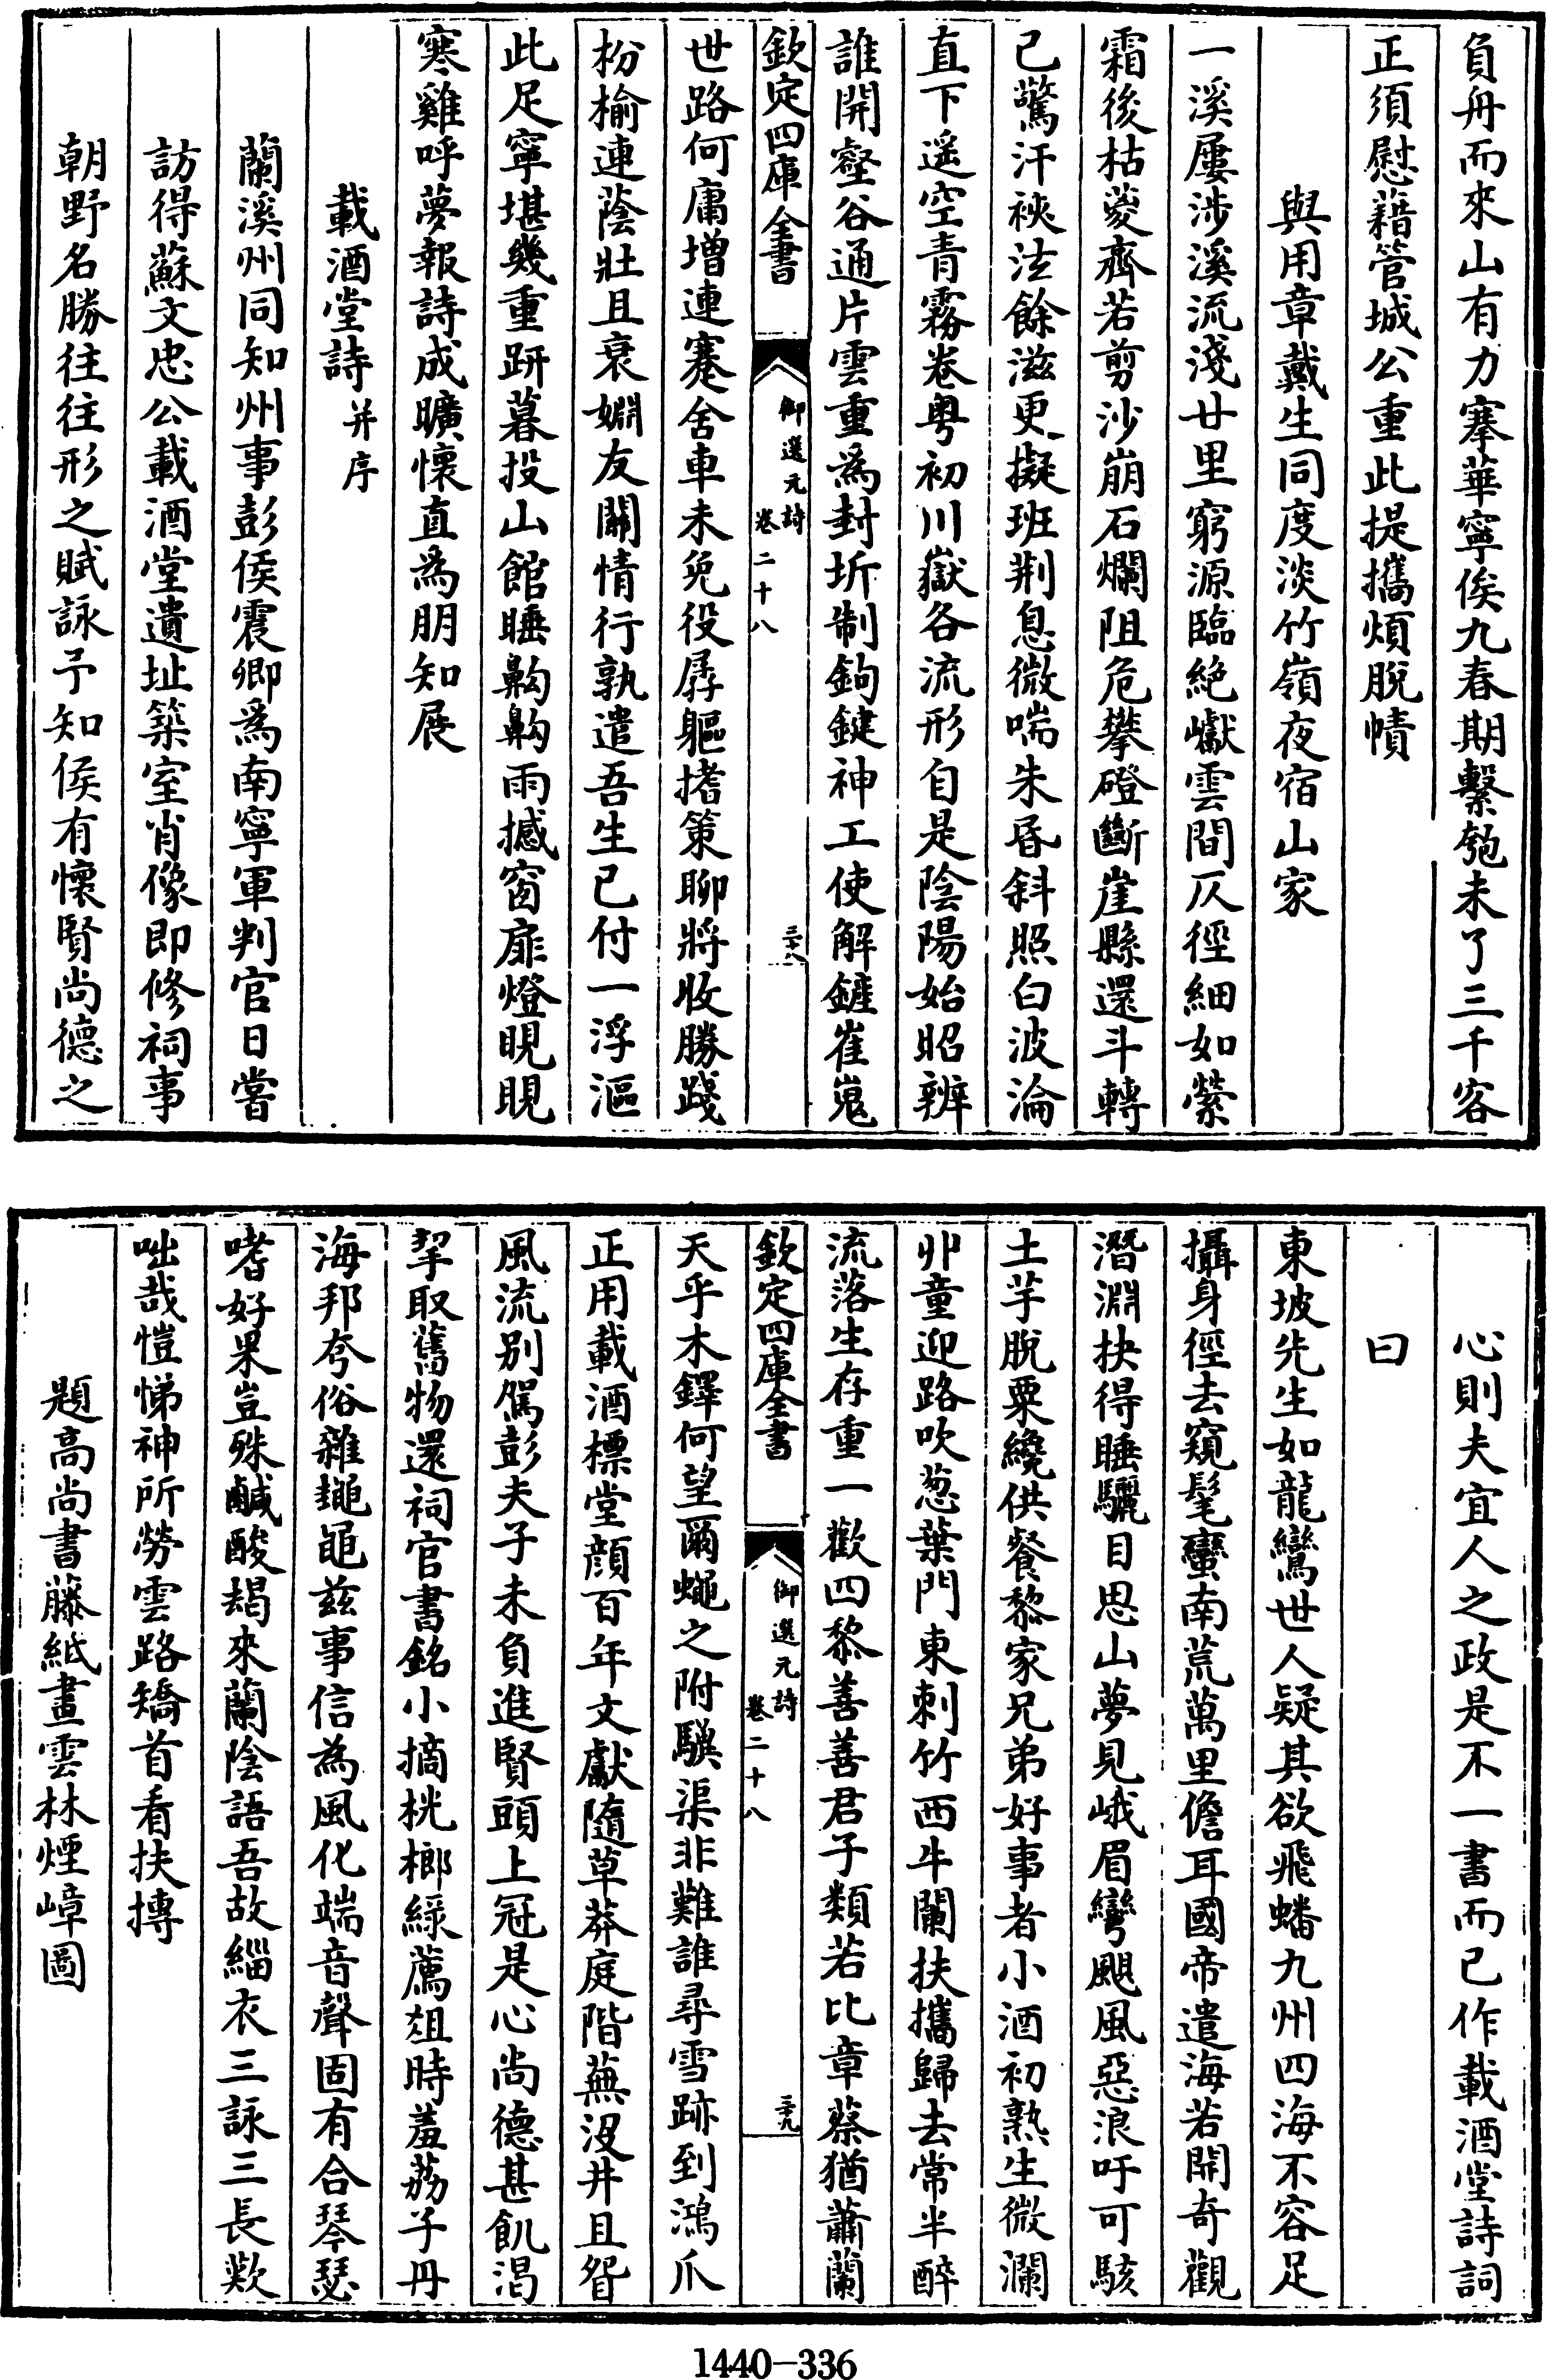 負舟而來山有力搴華寧俟九春期繫匏未了三千客
正須慰藉管城公重此提攜煩脫幘
與用章戴生同度淡竹嶺夜宿山家
一溪屢涉溪流淺廿里窮源臨絶巘雲間仄徑細如縈
霜後枯菱齊若剪沙崩石爛阻危攀磴斷崖懸還斗轉
已驚汗裌法餘滋更擬班荆息微喘朱昏斜照白波淪
直下遥空青霧卷粤初川嶽各流形自是陰陽始昭辨
誰開壑谷通片雲重為封圻制鉤鍵神工使解鏟崔嵬
欽定四庫全書
御選元詩
卷二十八
三十八
世路何庸增連蹇舍車未免役孱軀揩策聊將收勝踐
枌榆連蔭壯且衰婣友關情行孰遣吾生已付一浮漚
此足寧堪幾重趼暮投山館睡齁齁雨撼窗扉燈睍睍
寒雞呼夢報詩成曠懷直為朋知展
載酒堂詩并序
蘭溪州同知州事彭侯震卿為南寧軍判官日嘗
訪得蘇文忠公載酒堂遺址築室肖像即修祠事
朝野名勝往往形之賦詠予知侯有懷賢尚德之
心則夫宜人之政是不一書而已作載酒堂詩詞
曰
東坡先生如龍鸞世人疑其欲飛蟠九州四海不容足
攝身徑去窺髦蠻南荒萬里儋耳國帝遣海若開奇觀
潛淵抉得睡驪目思山夢見峨眉彎颶風惡浪吁可駭
土芋脫粟纔供餐黎家兄弟好事者小酒初熟生微瀾
丱童迎路吹葱葉門東刺竹西牛闌扶攜歸去常半醉
流落生存重一歡四黎善善君子類若比章蔡猶蕭蘭
欽定四庫全書
御選元詩
卷二十八
三十九
天乎木鐸何望爾蠅之附驥渠非難誰尋雪跡到鴻爪
正用載酒標堂顔百年文獻隨草莽庭階蕪没井且眢
風流别駕彭夫子未負進賢頭上冠是心尚德甚飢渴
挈取舊物還祠官書銘小摘桄榔緑薦俎時羞荔子丹
海邦夸俗雜䵷黽兹事信為風化端音聲固有合琴瑟
嗜好果豈殊鹹酸朅來蘭陰語吾故緇衣三詠三長歎
咄哉愷悌神所勞雲路矯首看扶摶
題高尚書藤紙畫雲林煙嶂圖
1440-336